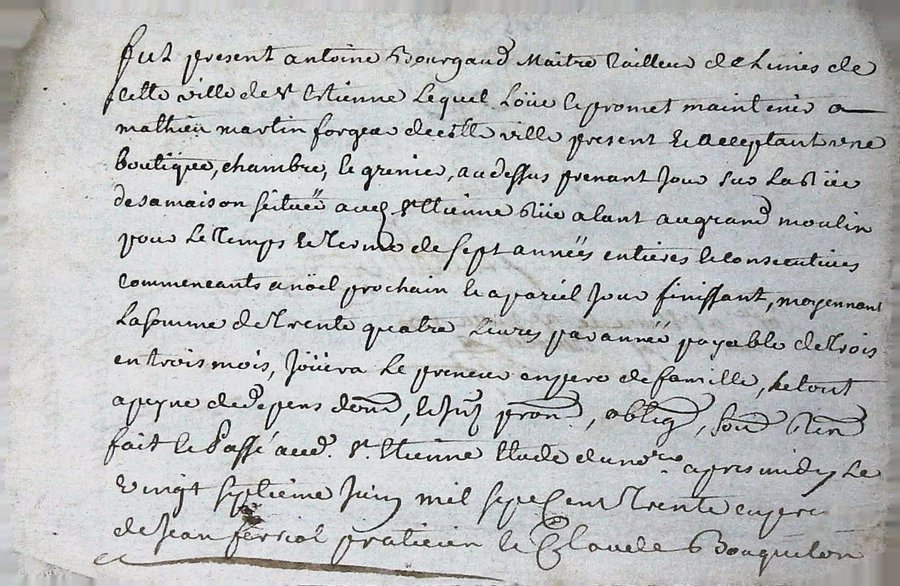 fut present antoine Bourgaud Maitre tailleur de Limes de
cette ville de St Etienne Lequel Loüe et promet maintenir a
mathieu martin forgeur de cette ville present et acceptant une
boutique, chambre, et grenier, au dessus prenant Jour sur La Rüe
de sa maison scituée aud St Etienne Rüe alant au grand moulin
pour Le temps et terme de sept années entieres et consecutives
commencants a nöel prochain et a pareil Jour finissant, moyennant
La somme de trente quatre Livres par année payable de trois
en trois mois, Joüira Le preneur en pere de famille, Le tout
a peyne de depens dom, et Jnt prom, oblig, soum Ren
fait et Passé aud. St Etienne Etude du nore apres midy Le
vingt septieme Juin mil sept Cent trente en pre
de Jean ferriol praticien et Claude